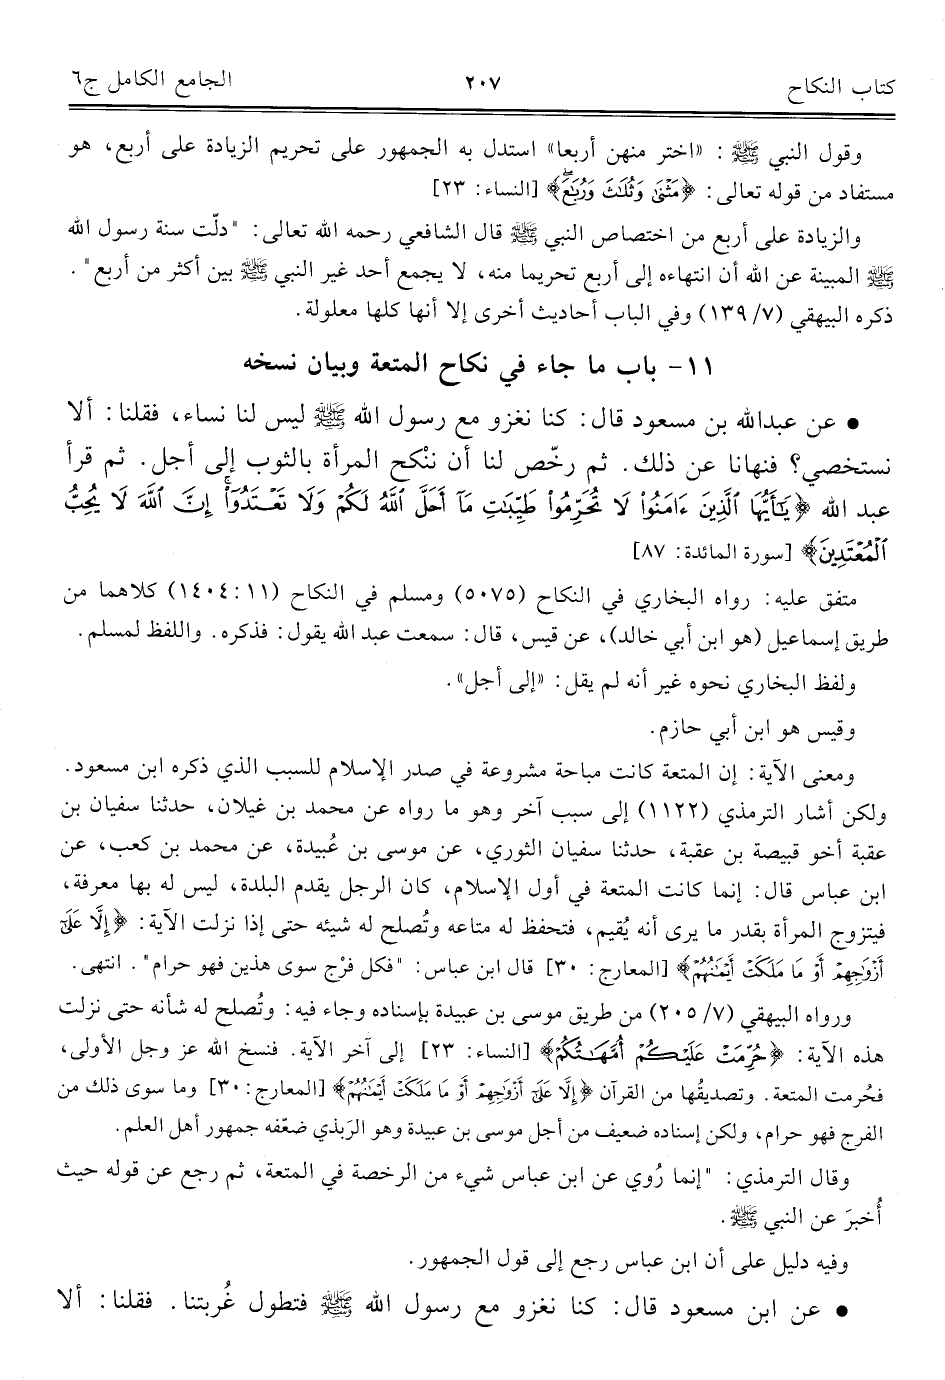 كتاب النكاح ٢٠٧ الجامع الكامل ج٦
وقول النبي ﷺ: «اختر منهن أربعا» استدل به الجمهور على تحريم الزيادة على أربع، هو
مستفاد من قوله تعالى: ﴿مَثْنَىٰ وَثُلَٰثَ وَرُبَٰعَ﴾ [النساء: ٢٣]
والزيادة على أربع من اختصاص النبي ﷺ قال الشافعي رحمه الله تعالى: "دلّت سنة رسول الله
ﷺ المبينة عن الله أن انتهاءه إلى أربع تحريما منه، لا يجمع أحد غير النبي ﷺ بين أكثر من أربع".
ذكره البيهقي (٧/ ١٣٩) وفي الباب أحاديث أخرى إلا أنها كلها معلولة.
١١- باب ما جاء في نكاح المتعة وبيان نسخه
• عن عبدالله بن مسعود قال: كنا نغزو مع رسول الله ﷺ ليس لنا نساء، فقلنا: ألا
نستخصي؟ فنهانا عن ذلك. ثم رخّص لنا أن ننْكح المرأة بالثوب إلى أجل. ثم قرأ
عبد الله ﴿يَٰٓأَيُّهَا ٱلَّذِينَ ءَامَنُوا۟ لَا تُحَرِّمُوا۟ طَيِّبَٰتِ مَآ أَحَلَّ ٱللَّهُ لَكُمْ وَلَا تَعْتَدُوٓا۟ ۚ إِنَّ ٱللَّهَ لَا يُحِبُّ
ٱلْمُعْتَدِينَ﴾ [سورة المائدة: ٨٧]
متفق عليه: رواه البخاري في النكاح (٥٠٧٥) ومسلم في النكاح (١٤٠٤:١١) كلاهما من
طريق إسماعيل (هو ابن أبي خالد)، عن قيس، قال: سمعت عبد الله يقول: فذكره. واللفظ لمسلم.
ولفظ البخاري نحوه غير أنه لم يقل: «إلى أجل».
وقيس هو ابن أبي حازم.
ومعنى الآية: إن المتعة كانت مباحة مشروعة في صدر الإسلام للسبب الذي ذكره ابن مسعود.
ولكن أشار الترمذي (١١٢٢) إلى سبب آخر وهو ما رواه عن محمد بن غيلان، حدثنا سفيان بن
عقبة أخو قبيصة بن عقبة، حدثنا سفيان الثوري، عن موسى بن عُبيدة، عن محمد بن كعب، عن
ابن عباس قال: إنما كانت المتعة في أول الإسلام، كان الرجل يقدم البلدة، ليس له بها معرفة،
فيتزوج المرأة بقدر ما يرى أنه يُقيم، فتحفظ له متاعه وتُصلح له شيئه حتى إذا نزلت الآية: ﴿إِلَّا عَلَىٰٓ
أَزْوَٰجِهِمْ أَوْ مَا مَلَكَتْ أَيْمَٰنُهُمْ﴾ [المعارج: ٣٠] قال ابن عباس: "فكل فرْج سوى هذين فهو حرام". انتهى.
ورواه البيهقي (٧/ ٢٠٥) من طريق موسى بن عبيدة بإسناده وجاء فيه: وتُصلح له شأنه حتى نزلت
هذه الآية: ﴿حُرِّمَتْ عَلَيْكُمْ أُمَّهَٰتُكُمْ﴾ [النساء: ٢٣] إلى آخر الآية. فنسخ الله عز وجل الأولى،
فحُرمت المتعة. وتصديقُها من القرآن ﴿إِلَّا عَلَىٰٓ أَزْوَٰجِهِمْ أَوْ مَا مَلَكَتْ أَيْمَٰنُهُمْ﴾ [المعارج: ٣٠] وما سوى ذلك من
الفرج فهو حرام، ولكن إسناده ضعيف من أجل موسى بن عبيدة وهو الرَبذي ضعّفه جمهور أهل العلم.
وقال الترمذي: "إنما رُوي عن ابن عباس شيء من الرخصة في المتعة، ثم رجع عن قوله حيث
أُخبرَ عن النبي ﷺ.
وفيه دليل على أن ابن عباس رجع إلى قول الجمهور.
• عن ابن مسعود قال: كنا نغزو مع رسول الله ﷺ فتطول غُربتنا. فقلنا: ألا